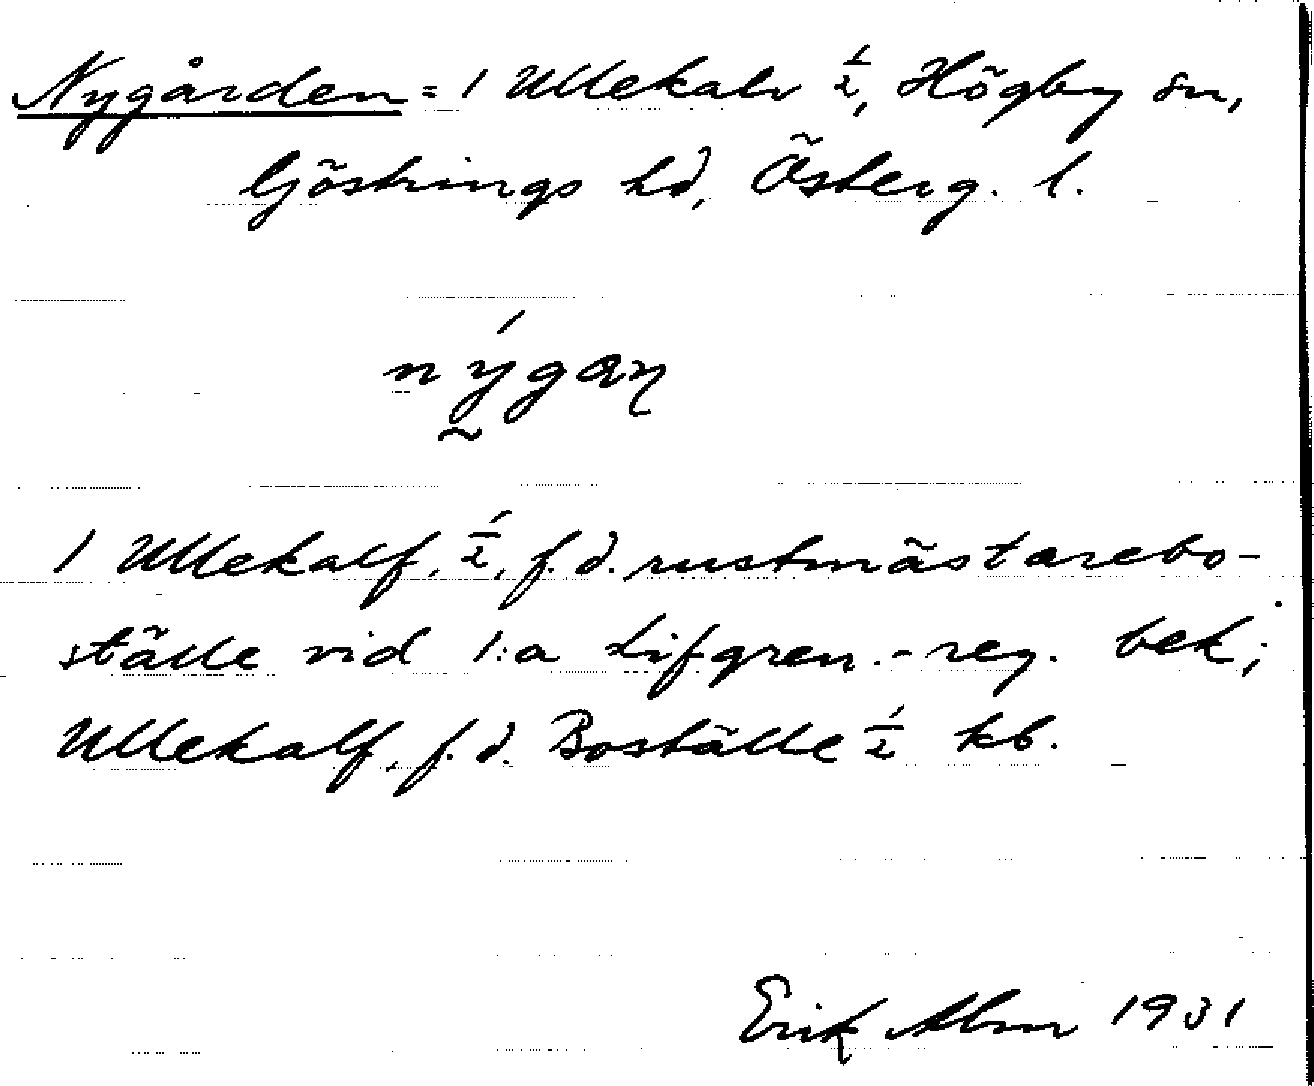 Nygården = 1 Ullekalv ½, Högby sn,
Göstrings hd, Österg. l.
nýgaꞃ
1 Ullekalf, ½, f.d. rustmästarebo-
ställe vid 1:a Lifgren.-reg. bek;
Ullekalf, f.d. Boställe ½ kb.
Erik Alm 1931